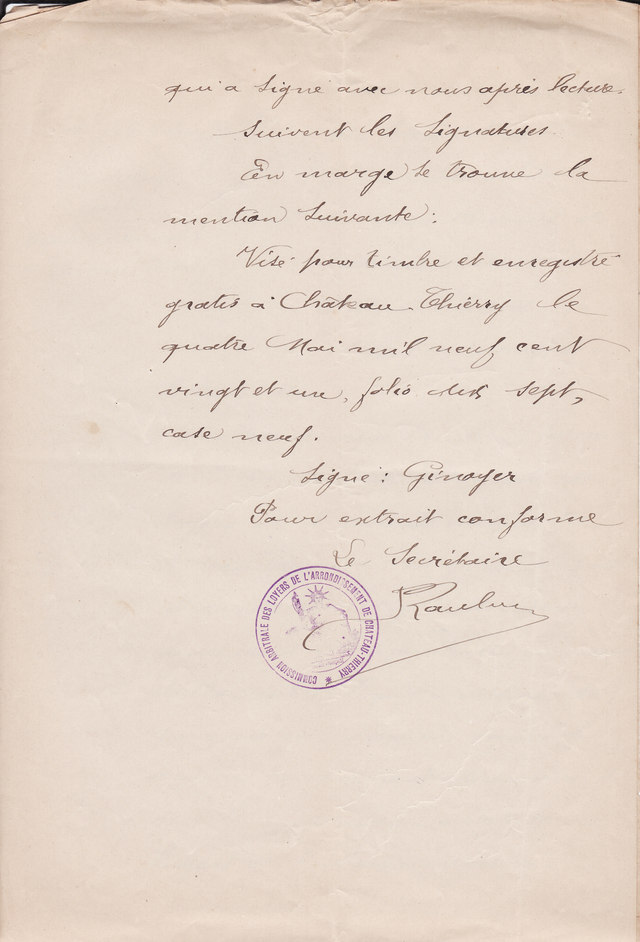 qui a signé avec nous après lecture.
Suivent les signatures
En marge se trouve la
mention suivante :
Visé pour timbre et enregistré
gratis à Château-Thierry le
quatre Mai mil neuf cent
vingt et un, folio sept,
case neuf.
Signé : Ginoyer
Pour extrait conforme
Le Secrétaire
COMMISSION ARBITRALE DES LOYERS DE L'ARRONDISSEMENT DE CHATEAU-THIERRY